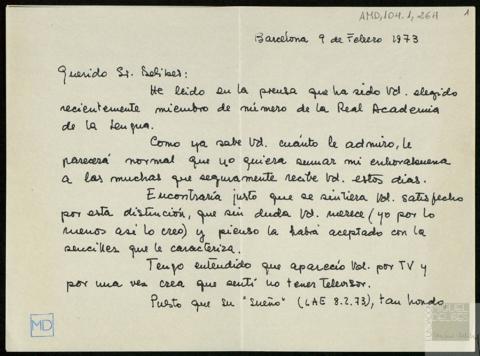 AMD,104.1,264
1
Barcelona 9 de Febrero 1973
Querido Sr. Delibes:
He leido en la prensa que ha sido Vd. elegido
recientemente miembro de número de la Real Academia
de la Lengua.
Como ya sabe Vd. cuánto le admiro, le
parecerá normal que yo quiera sumar mi enhorabuena
a las muchas que seguramente recibe Vd. estos días.
Encontraría justo que se sintiera Vd. satisfecho
por esta distinción, que sin duda Vd. merece (yo por lo
menos asi lo creo) y pienso la habrá aceptado con la
sencillez que le caracteriza.
Tengo entendido que apareció Vd. por TV y
por una vez crea que sentí no tener televisor.
Puesto que su "sueño" (LAE 8.2.73), tan hondo
MD